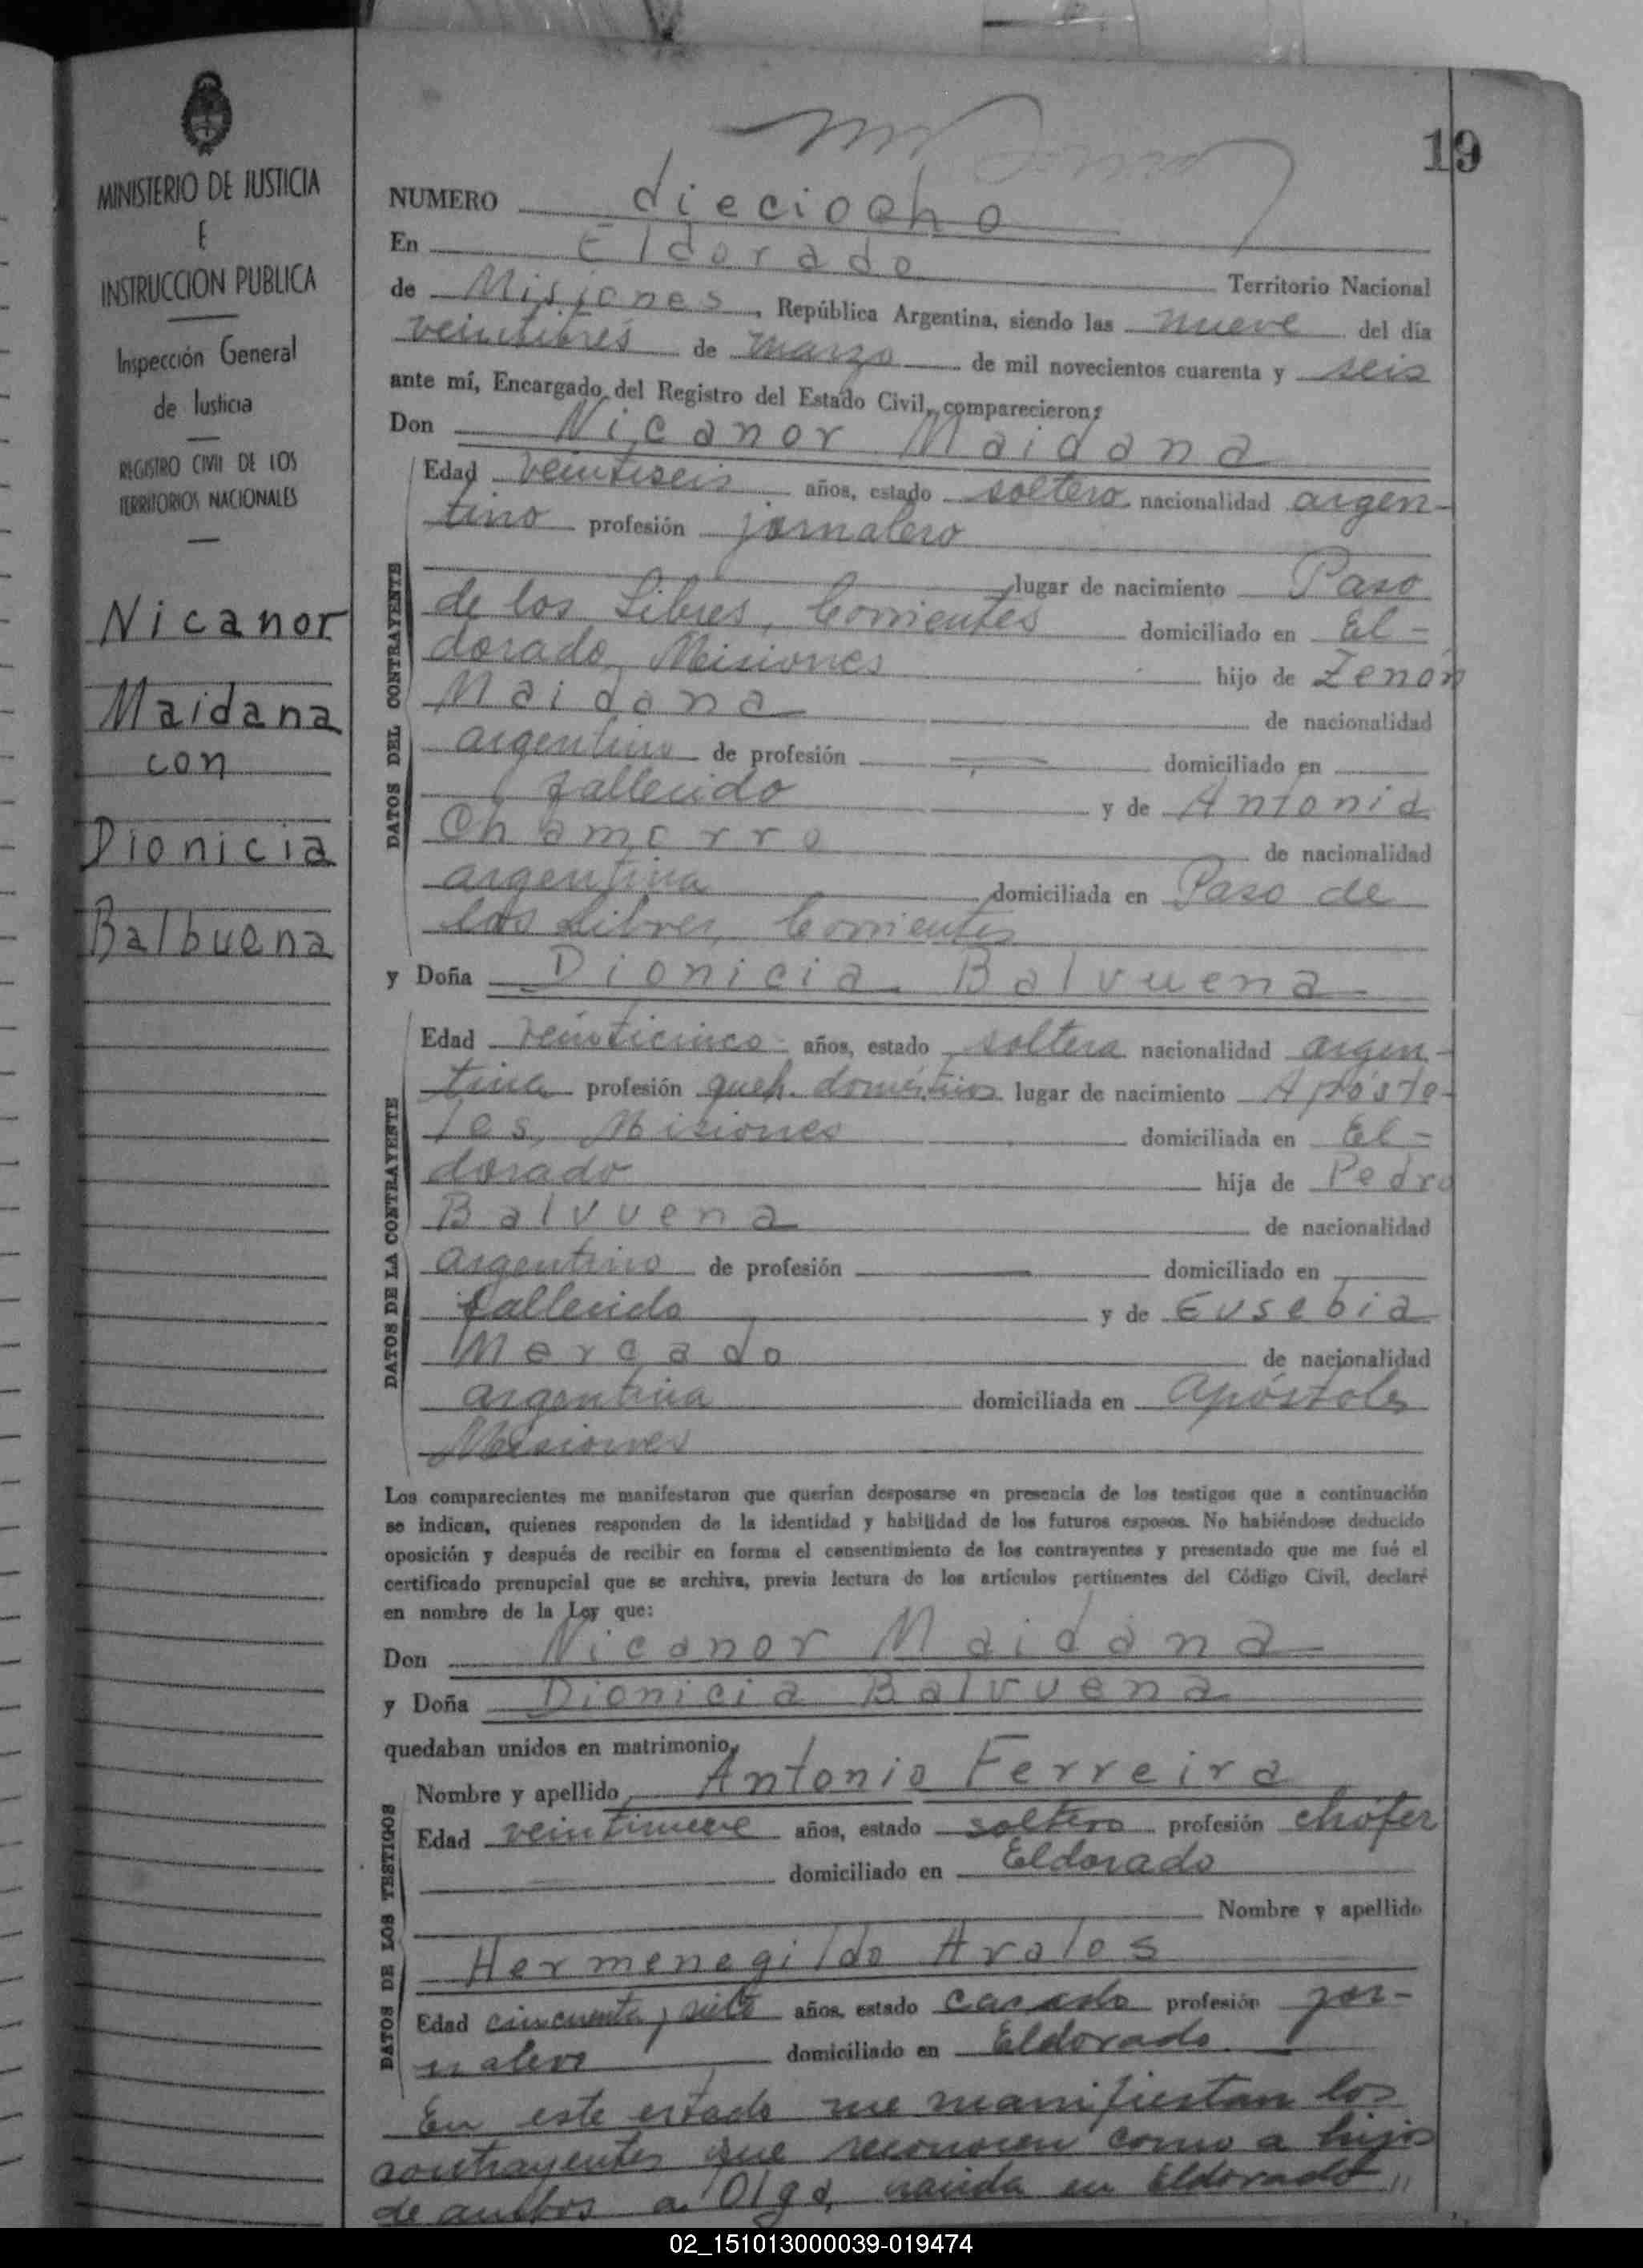 MINISTERIO DE JUSTICIA
E
INSTRUCCION PUBLICA
Inspección General
de Justicia
REGISTRO CIVIL DE LOS
TERRITORIOS NACIONALES
Nicanor
Maidana
con
Dionicia
Balbuena
19
NUMERO dieciocho
En Eldorado Territorio Nacional
de Misiones, República Argentina, siendo las nueve del día
veintitres de marzo de mil novecientos cuarenta y seis
ante mí, Encargado del Registro del Estado Civil, comparecieron:
Don Nicanor Maidana
DATOS DEL CONTRAYENTE
Edad veintiseis años, estado soltero nacionalidad argen-
tino profesión jornalero
lugar de nacimiento Paso
de los Libres, Corrientes domiciliado en El-
dorado, Misiones hijo de Zenón
Maidana de nacionalidad
argentino de profesión domiciliado en
fallecido y de Antonia
Chamorro de nacionalidad
argentina domiciliada en Paso de
los Libres, Corrientes
y Doña Dionicia Balvuena
DATOS DE LA CONTRAYENTE
Edad veinticinco años, estado soltera nacionalidad argen-
tina profesión queh. domésticos lugar de nacimiento Apósto-
les, Misiones domiciliada en El-
dorado hija de Pedro
Balvuena de nacionalidad
argentino de profesión domiciliado en
fallecido y de Eusebia
Mercado de nacionalidad
argentina domiciliada en Apóstoles
Misiones
Los comparecientes me manifestaron que querían desposarse en presencia de los testigos que a continuación
se indican, quienes responden de la identidad y habilidad de los futuros esposos. No habiéndose deducido
oposición y después de recibir en forma el consentimiento de los contrayentes y presentado que me fué el
certificado prenupcial que se archiva, previa lectura de los artículos pertinentes del Código Civil, declaré
en nombre de la Ley que:
Don Nicanor Maidana
y Doña Dionicia Balvuena
quedaban unidos en matrimonio,
DATOS DE LOS TESTIGOS
Nombre y apellido Antonio Ferreira
Edad veintinueve años, estado soltero profesión chófer
domiciliado en Eldorado
Nombre y apellido
Hermenegildo Avalos
Edad cincuenta y siete años, estado casado profesión jor-
nalero domiciliado en Eldorado.
En este estado me manifiestan los
contrayentes que reconocen como a hijos
de ambos a Olga, nacida en Eldorado,
02_151013000039-019474